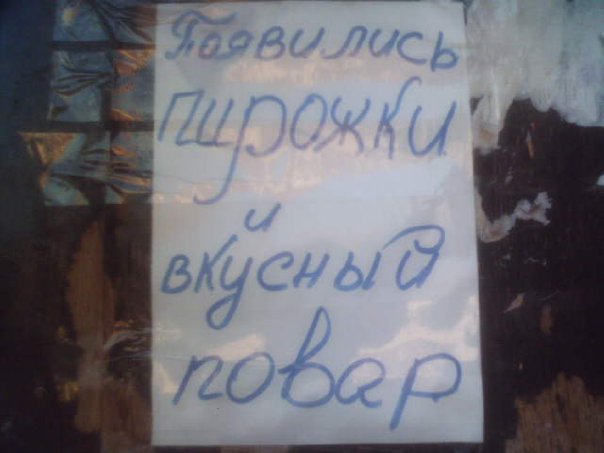 Появились
пирожки
и
вкусный
повар